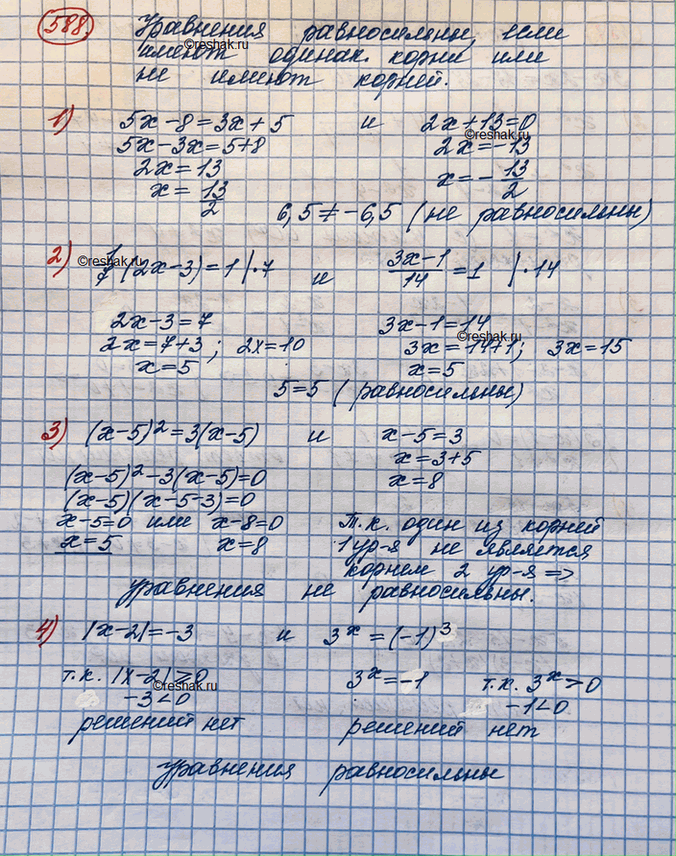 588.
Уравнения равносильны, если
©reshak.ru
имеют одинак. корни или
не имеют корней.
1) 5x-8=3x+5 и 2x+13=0
©reshak.ru
5x-3x=5+8 2x=-13
2x=13 x=-13/2
x=13/2
6,5≠-6,5 (не равносильны)
2) 1/7(2x-3)=1|·7 и (3x-1)/14=1 |·14
©reshak.ru
2x-3=7 3x-1=14
©reshak.ru
2x=7+3; 2x=10 3x=14+1; 3x=15
x=5 x=5
5=5 (равносильны)
3) (x-5)²=3(x-5) и x-5=3
x=3+5
(x-5)²-3(x-5)=0 x=8
(x-5)(x-5-3)=0
x-5=0 или x-8=0 Т.к. один из корней
x=5 x=8 1 ур-я не является
корнем 2 ур-я =>
уравнения не равносильны.
4) |x-2|=-3 и 3ˣ=(-1)³
т.к. |x-2|≥0 3ˣ=-1 т.к. 3ˣ>0
©reshak.ru
-3<0 -1<0
решений нет решений нет
уравнения равносильны